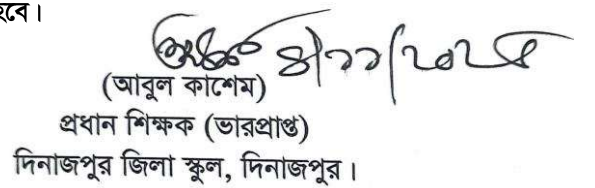 হবে।
৪/১১/২০২৫
(আবুল কাশেম)
প্রধান শিক্ষক (ভারপ্রাপ্ত)
দিনাজপুর জিলা স্কুল, দিনাজপুর।